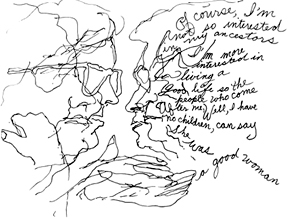 Of course, I'm
not so interested
in my ancestors
I'm more
interested in
living a
good life so the
people who come
after me, Well, I have
no children, can say
She was
a good woman